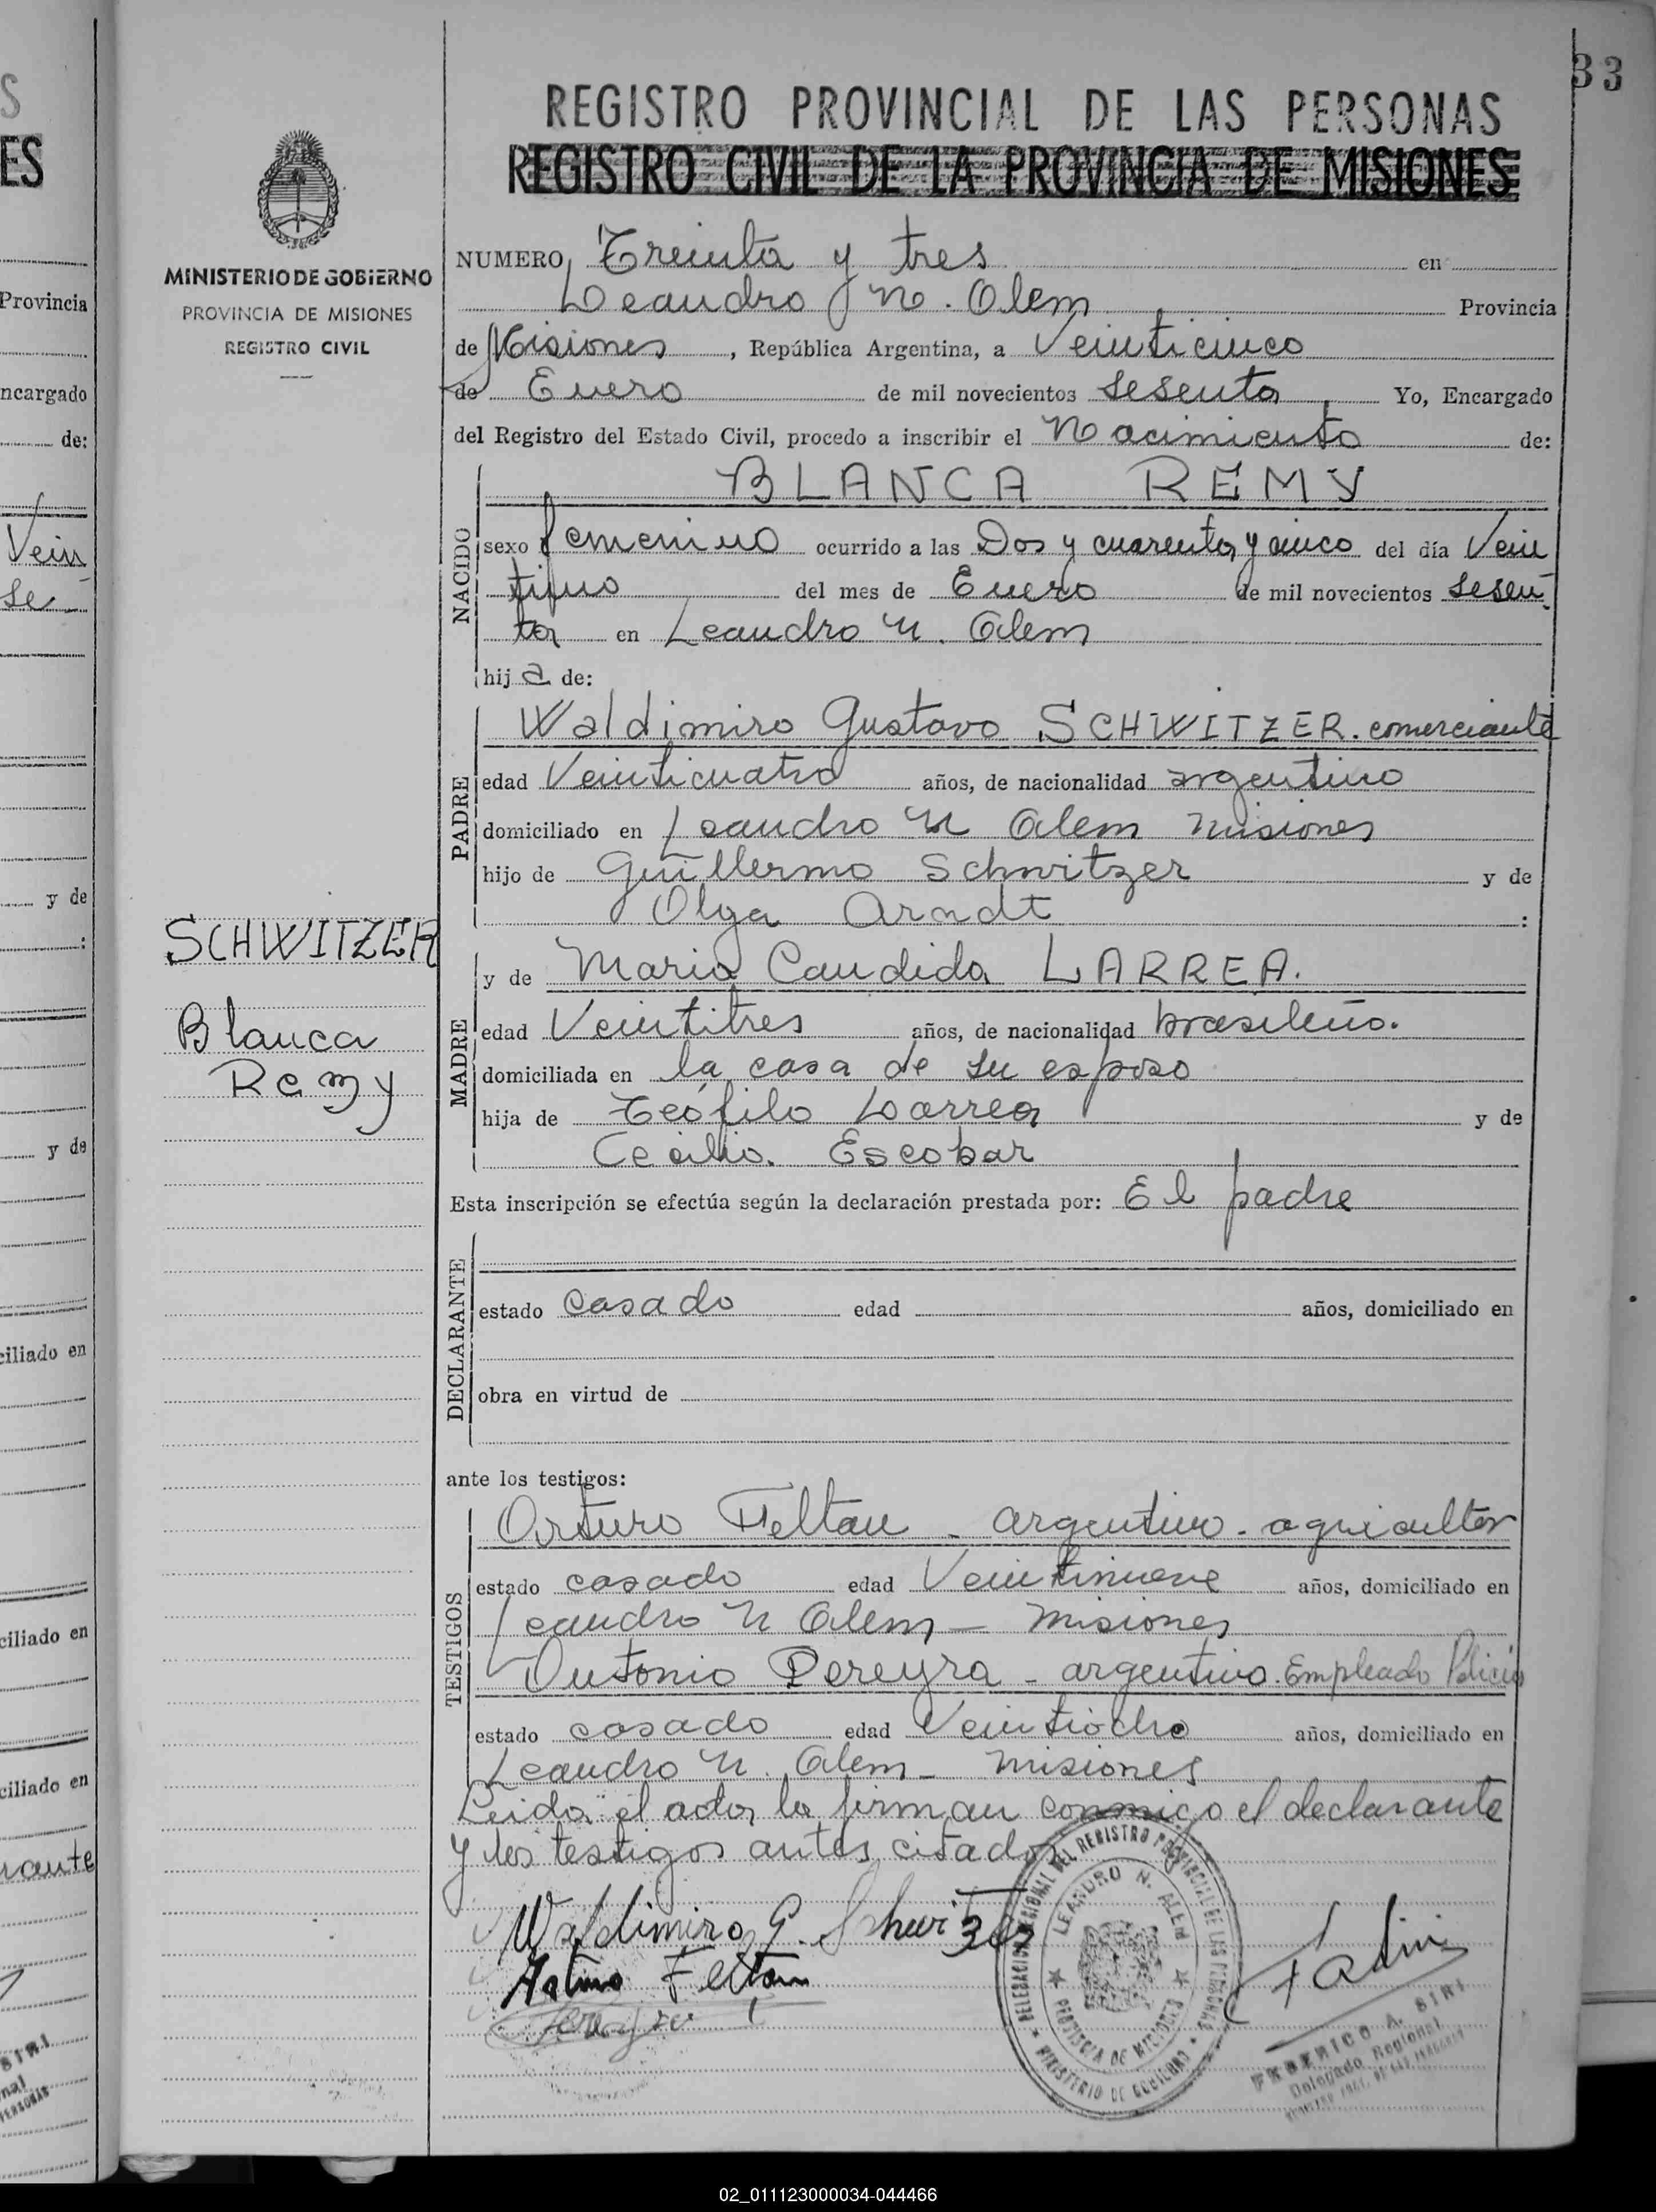 33
REGISTRO PROVINCIAL DE LAS PERSONAS
REGISTRO CIVIL DE LA PROVINCIA DE MISIONES
MINISTERIO DE GOBIERNO
PROVINCIA DE MISIONES
REGISTRO CIVIL
NUMERO Treinta y tres en
Leandro N. Alem Provincia
de Misiones, República Argentina, a Veinticinco
de Enero de mil novecientos sesenta Yo, Encargado
del Registro del Estado Civil, procedo a inscribir el Nacimiento de:
BLANCA REMY
NACIDO
sexo femenino ocurrido a las Dos y cuarenta y cinco del día Vein
tiuno del mes de Enero de mil novecientos sesen
ta en Leandro N. Alem
hija de:
Waldimiro Gustavo SCHWITZER. comerciante
PADRE
edad Veinticuatro años, de nacionalidad argentino
domiciliado en Leandro N Alem Misiones
hijo de Guillermo Schwitzer y de
Olga Arndt :
SCHWITZER
Blanca
Remy
y de Maria Candida LARREA.
MADRE
edad Veintitres años, de nacionalidad brasileña.
domiciliada en la casa de su esposo
hija de Teófilo Larrea y de
Cecilia Escobar
Esta inscripción se efectúa según la declaración prestada por: El padre
DECLARANTE
estado casado edad años, domiciliado en
obra en virtud de
ante los testigos:
Arturo Feltan - argentino - agricultor
TESTIGOS
estado casado edad Veintinueve años, domiciliado en
Leandro N Alem - Misiones
Antonio Pereyra - argentino. Empleado Policia
estado casado edad Veintiocho años, domiciliado en
Leandro N. Alem - Misiones
Leida el acta, la firman conmigo el declarante
y los testigos antes citados
Waldimiro G. Schwitzer
Arturo Feltan
Pereyra
DELEGACION REGIONAL DEL REGISTRO PROVINCIAL DE LAS PERSONAS
LEANDRO N. ALEM
PROVINCIA DE MISIONES
MINISTERIO DE GOBIERNO
FEDERICO A. SIRI
Delegado Regional
02_011123000034-044466